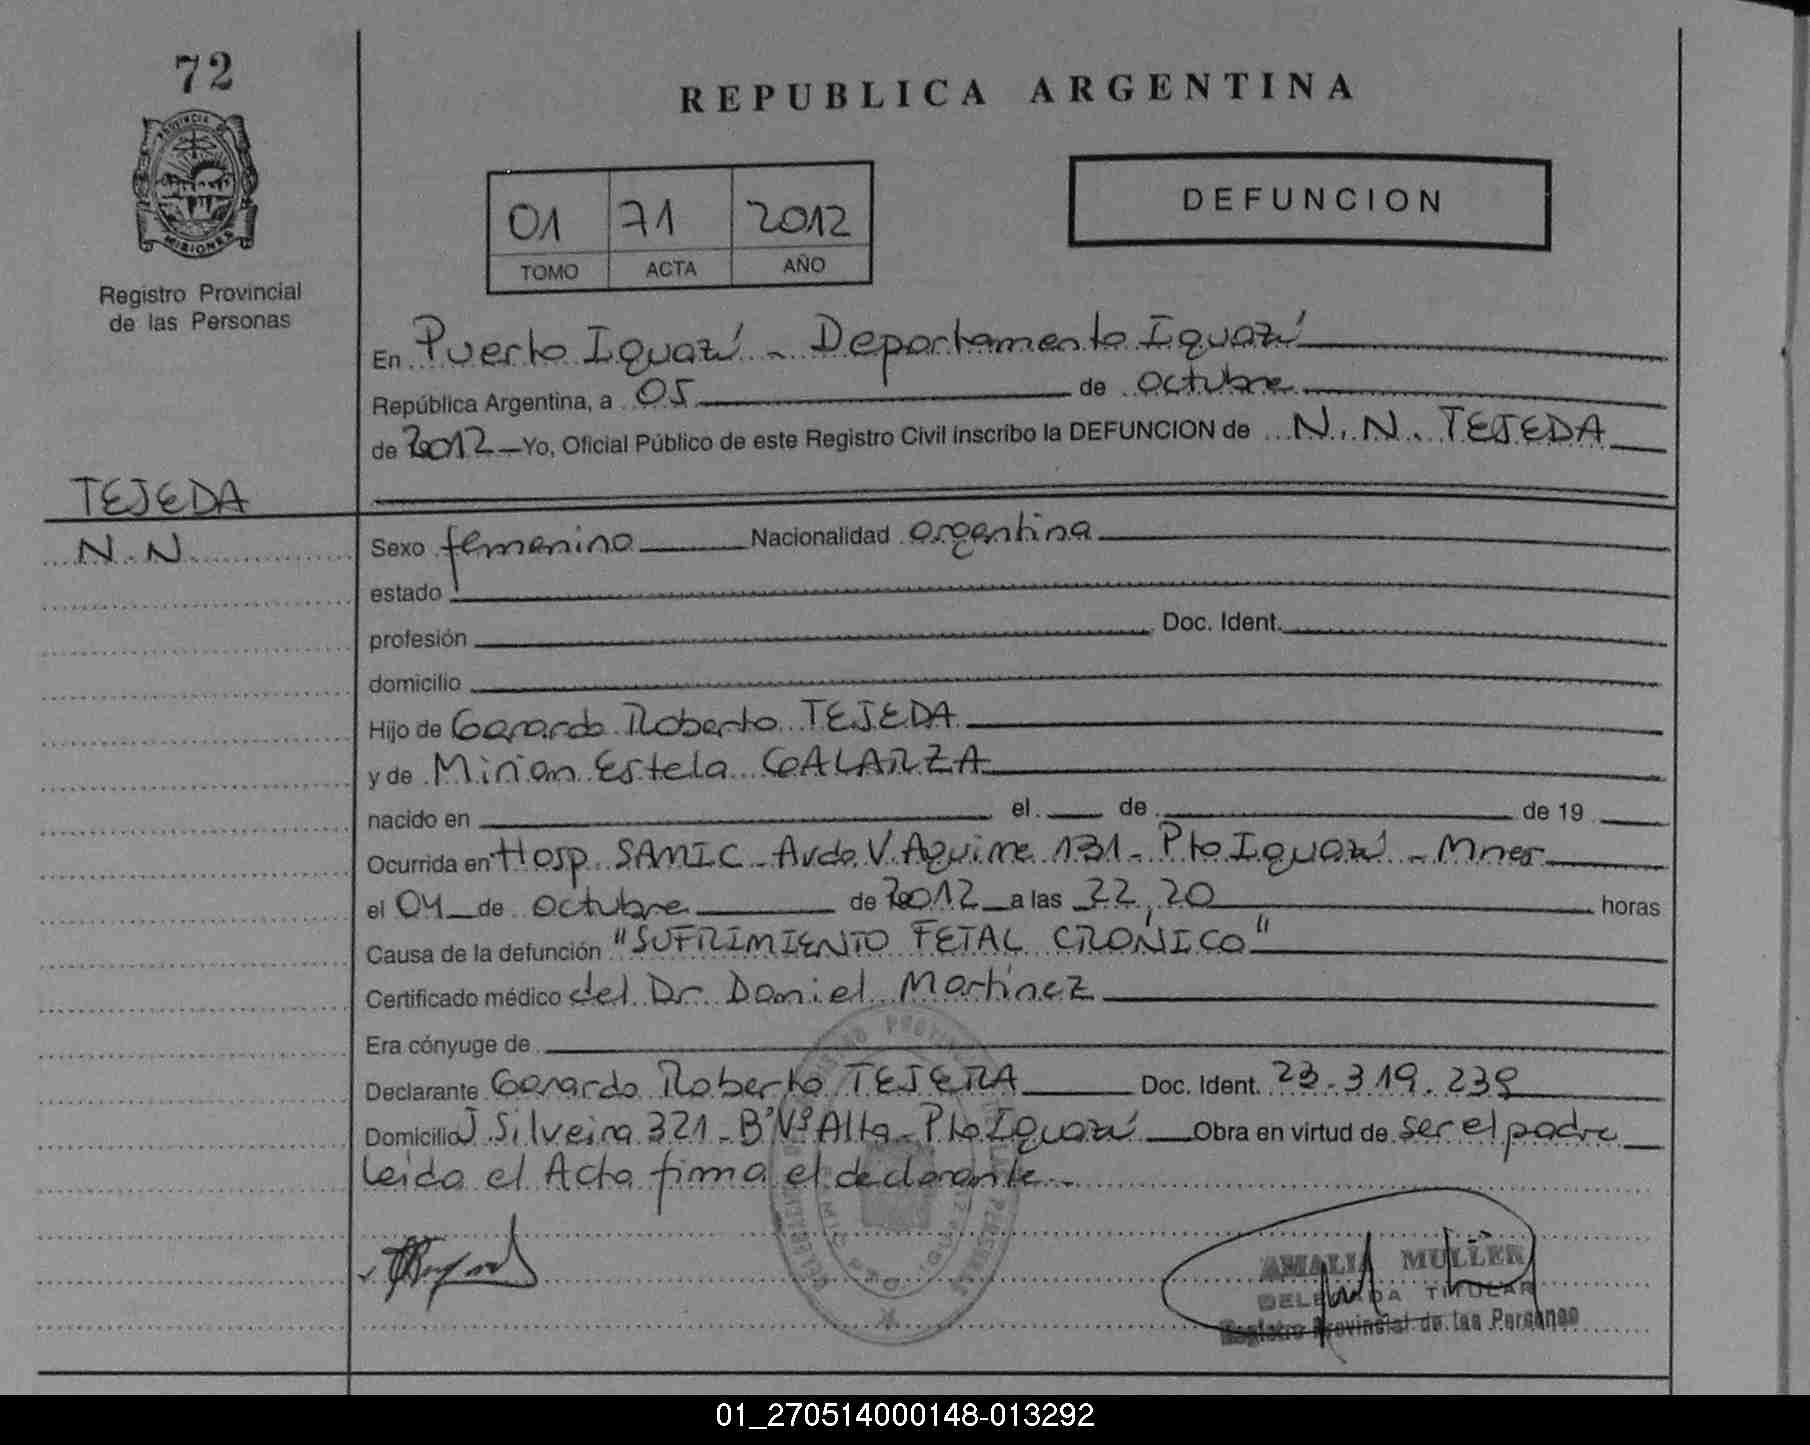 72
PROVINCIA DE
MISIONES
Registro Provincial
de las Personas
REPUBLICA ARGENTINA
01 71 2012
TOMO ACTA AÑO
DEFUNCION
En Puerto Iguazú - Departamento Iguazú
República Argentina, a 05 de octubre
de 2012 Yo, Oficial Público de este Registro Civil inscribo la DEFUNCION de N.N. TEJEDA
TEJEDA
N.N
Sexo femenino Nacionalidad argentina
estado
profesión Doc. Ident.
domicilio
Hijo de Gerardo Roberto TEJEDA
y de Mirian Estela GALARZA
nacido en el de de 19
Ocurrida en Hosp. SAMIC - Avda V. Aguirre 131 - Pto Iguazú - Mnes
el 04 de octubre de 2012 a las 22,20 horas
Causa de la defunción "SUFRIMIENTO FETAL CRÓNICO"
Certificado médico del Dr. Daniel Martínez
Era cónyuge de
Declarante Gerardo Roberto TEJERA Doc. Ident. 23.319.239
Domicilio J. Silveira 321 - Bº Vª Alta - Pto Iguazú Obra en virtud de ser el padre
Leida el Acta firma el declarante -
AMALIA MULLER
DELEGADA TITULAR
Registro Provincial de las Personas
01_270514000148-013292